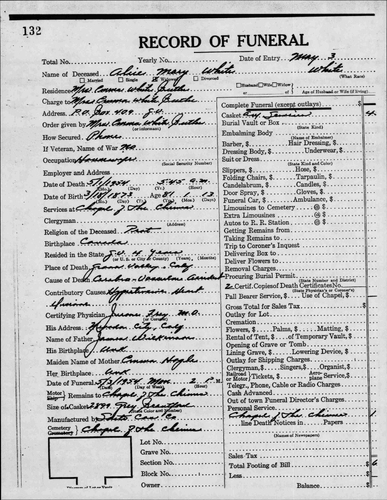 132
RECORD OF FUNERAL
Total No. Yearly No. Date of Entry May 3
Name of Deceased Alice Mary White White
Married Single Widowed Divorced (What Race)
Residence Mrs. White
Husband Wife Widow
of Age of Husband or Wife (if living)
Charge to Mrs. White
Address P.O. Box 409 G.V.
Order given by Mrs. White
(or informant)
How Secured Phone
If Veteran, Name of War No
Occupation Housewife
(Social Security Number)
Employer and Address
Date of Death 5/1/1954 5:45 a.m.
Date of Birth 3/18/1873 Age 81 1 13
Services at Chapel of the Chimes
Clergyman
Religion of the Deceased Prot
Birthplace Canada
Resided in the State G.V. 4 years
(in U.S. or City or County) (Years) (Months)
Place of Death Grass Valley - Calif
Cause of Death Cerebro-Vascular accident
Contributory Causes Hypertensive Heart
Disease
Certifying Physician Frey M.D.
His Address Nevada City, Calif
Name of Father James Dickinson
His Birthplace Unk
Maiden Name of Mother Hoyle
Her Birthplace Unk
Date of Funeral 5/3/1954 Mon. 2 P.M.
Motor
Hearse Remains to Chapel of the Chimes
Size of Casket
Manufactured by
Cemetery
Crematory Chapel of the Chimes
Lot No.
Grave No.
Section No.
Block No.
Owner
Complete Funeral (except outlays) $
Casket Services 4
Burial Vault or Box
(State Kind)
Embalming Body
(Name of Embalmer)
Barber, $ Hair Dressing, $
Dressing Body, $ Underwear, $
Suit or Dress
(State Kind and Color)
Slippers, $ Hose, $
Folding Chairs, $ Tarpaulin, $
Candelabrum, $ Candles, $
Door Spray, $ Gloves, $
Funeral Car, $ Ambulance, $
Limousines to Cemetery @ $
Extra Limousines @ $
Autos to R. R. Station @ $
Getting Remains from
Taking Remains to
Trip to Coroner's Inquest
Delivering Box to
Deliver Flowers to
Removal Charges
Procuring Burial Permit
(State Number and District)
2 Certif. Copies of Death Certificates No.
(State Physician's or Coroner's)
Pall Bearer Service, $ Use of Chapel, $
Gross Total for Sales Tax
Outlay for Lot
Cremation
Flowers, $ Palms, $ Matting, $
Rental of Tent, $ of Temporary Vault, $
Opening of Grave or Tomb
Lining Grave, $ Lowering Device, $
Outlay for Shipping Charges
Clergyman, $ Singers, $ Organist, $
Railroad
or Motor Tickets, $ Aeroplane Service, $
Telegr., Phone, Cable or Radio Charges
Cash Advanced
Out of town Funeral Director's Charge
Personal Service
Chapel of the Chimes 1
line Death Notices in Papers
(Name of Newspapers)
Sales Tax
Total Footing of Bill $ 6
Less
Balance $